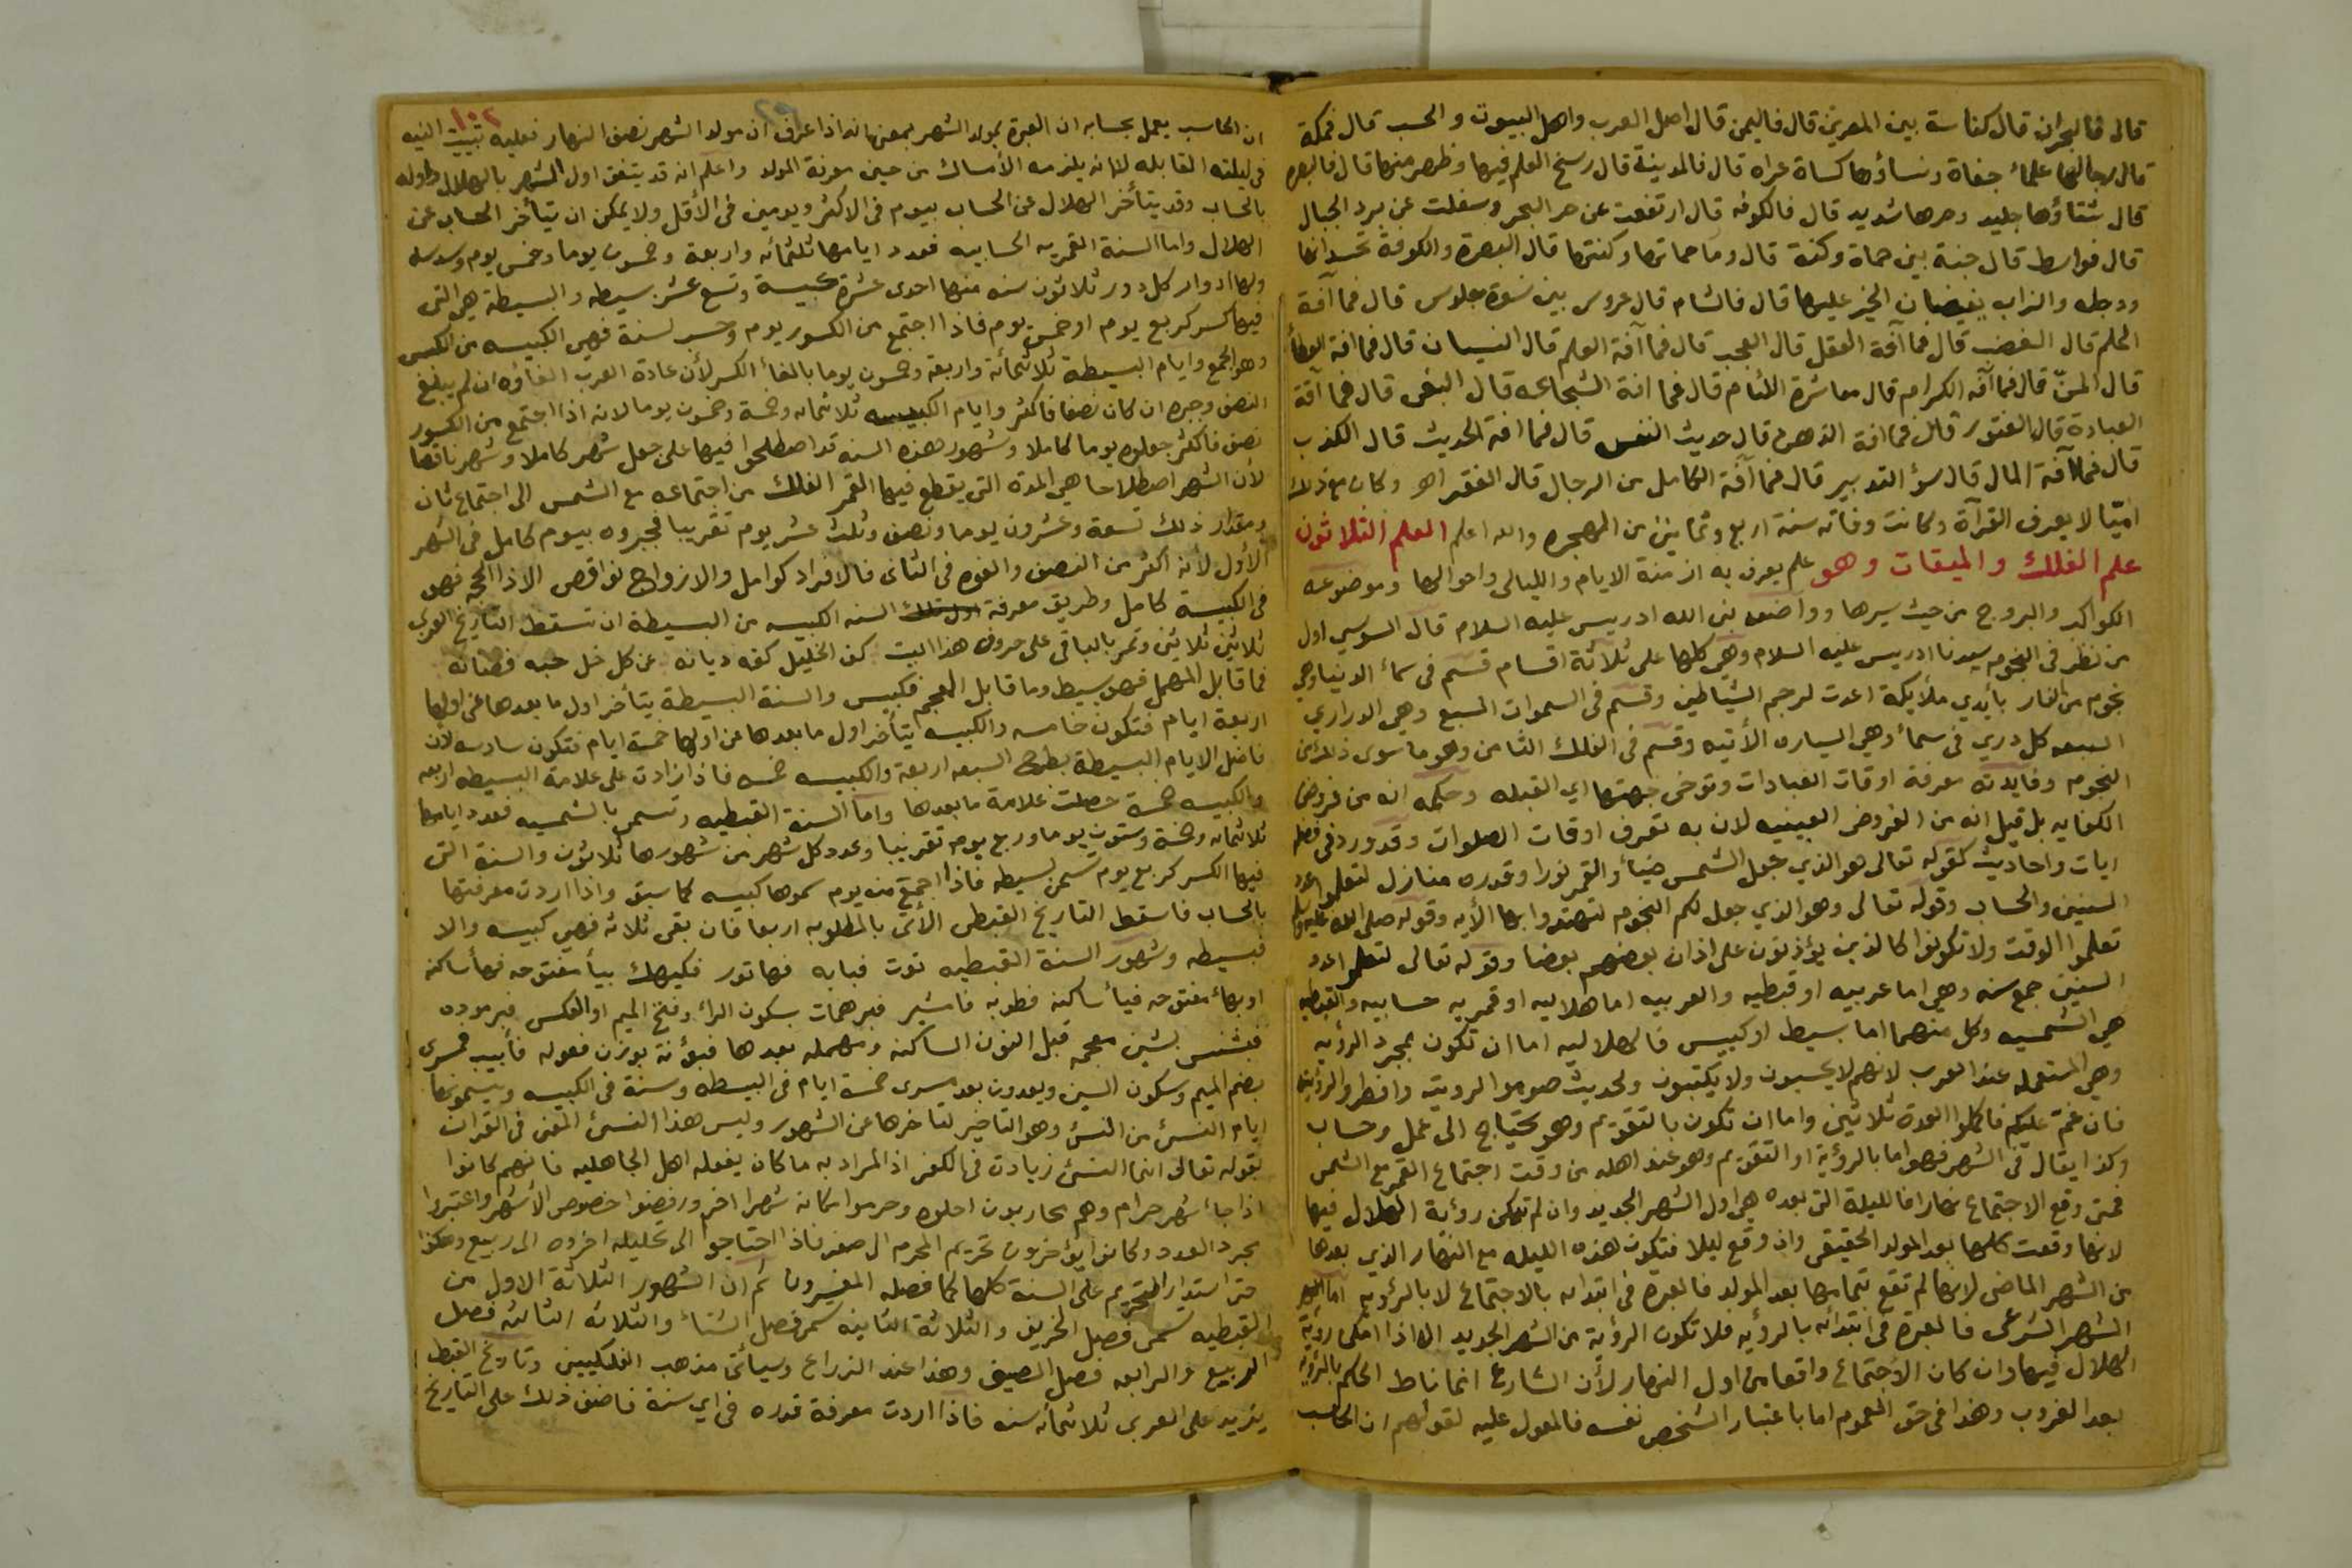 قال فالبحران قال كناسة بين المصرين قال فاليمن قال اصل العرب واهل البيوت والحسب قال فمكة
قال رجالها علماء جفاة ونساؤها كساة عراه قال فالمدينة قال رسخ العلم فيها وظهر منها قال فالبصره
قال شتاؤها جليد وحرها شديد قال فالكوفه قال ارتفعت عن حر البحر وسفلت عن برد الجبال
قال فواسط قال جنة بين حماة وكنة قال وما حماتها وكنتها قال البصرة والكوفة تحسدانها
ودجله والزاب يفيضان الخير عليها قال فالشام قال عروس بين نسوة جلوس قال فما آفة
الحلم قال الغضب قال فما آفة العقل قال العجب قال فما آفة العلم قال النسيان قال فما افة العطاء
قال المنّ قال فما آفه الكرام قال معاشرة اللئام قال فما افة الشجاعه قال البغى قال فما آفة
العبادة قال الفتور قال فما افة الذهن قال حديث النفس قال فما افة الحديث قال الكذب
قال فما آفة المال قال سؤ التدبير قال فما آفة الكامل من الرجال قال الفقد اهـ وكان مع ذلك
اميّا لا يعرف القرآة وكانت وفاته سنة اربع وثمانين من الهجره والله اعلم العلم الثلاثون
علم الفلك والميقات وهو علم يعرف به ازمنة الايام والليالي واحوالها وموضوعه
الكواكب والبروج من حيث سيرها وواضعه نبى الله ادريس عليه السلام قال السوسي اول
من نظر فى النجوم سيدنا ادريس عليه السلام وهي كلها على ثلاثة اقسام قسم فى سماء الدنيا وهي
نجوم من النار بأيدي ملايكة اعدت لرجم الشياطين وقسم فى السموات السبع وهي الدراري
السبعه كل دري فى سماء وهي السياره الأتيه وقسم فى الفلك الثامن وهو ما سوى ذلك من
النجوم وفايدته معرفة اوقات العبادات وتوخى جهتها اي القبله وحكمه انه من فروض
الكفايه بل قيل انه من الفروض العينيه لان به تعرف اوقات الصلوات وقد ورد فى فضله
ايات واحاديث كقوله تعالى هو الذي جعل الشمس ضياء والقمر نورا وقدره منازل لتعلموا عدد
السنين والحساب وقوله تعالى وهو الذي جعل لكم النجوم لتهتدوا بها الأيه وقوله صلى الله عليه وسلم
تعلموا الوقت ولا تكونوا كالذين يؤذنون على اذان بعضهم بعضا وقوله تعالى لتعلموا عدد
السنين جمع سنه وهي اما عربيه او قبطيه والعربيه اما هلاليه او قمريه حسابيه والقبطيه
هي الشمسيه وكل منهما اما بسيط او كبيس فالهلاليه اما ان تكون بمجرد الرؤيه
وهي المستعمله عند العرب لانهم لا يحسبون ولا يكتبون ولحديث صوموا لرويته وافطروا لرؤيته
فان غم عليكم فاكملوا العدة ثلاثين واما ان تكون بالتقويم وهو يحتاج الى عمل وحساب
وكذا يقال فى الشهر فهو اما بالرؤية او التقويم وهو عند اهله من وقت اجتماع القمر مع الشمس
فمتى وقع الاجتماع نهارا فالليلة التى بعده هي اول الشهر الجديد وان لم تمكن رؤية الهلال فيها
لانها وقعت كلها بعد المولد الحقيقى وان وقع ليلا فتكون هذه الليله مع النهار الذي بعدها
من الشهر الماضى لانها لم تقع بتمامها بعد المولد فالعبرة فى ابتدائه بالاجتماع لا بالرؤية اما
الشهر الشرعى فالعبرة فى ابتدائه بالرؤيه فلا تكون الرؤية من الشهر الجديد الا اذا امكن رؤية
الهلال فيها وان كان الاجتماع واقعا من اول النهار لأن الشارع انما ناط الحكم بالرؤيه
بعد الغروب وهذا فى حق العموم اما باعتبار الشخص نفسه فالمعول عليه لقولهم ان الحاسب
١٠٢
ان الحاسب يعمل بحسابه ان العبرة بمولد الشهر بمعنى انه اذا عرف ان مولد الشهر نصف النهار فعليه تبييت النيه
فى ليلته القابله لا انه يلزمه الأمساك من حين معرفة المولد واعلم انه قد يتفق اول الشهر بالهلال واوله
بالحساب وقد يتأخر الهلال عن الحساب بيوم فى الاكثر ويومين فى الأقل ولا يمكن ان يتأخر الحساب عن
الهلال واما السنة القمريه الحسابيه فعدد ايامها ثلثمائه واربعة وخمسون يوما وخمس يوم وسدسه
ولها ادوار كل دور ثلاثون سنه منها احدى عشرة كبيسة وتسع عشر بسيطه والبسيطة هي التى
فيها كسر كربع يوم او خمس يوم فاذا اجتمع من الكسور يوم وحسب لسنة فهي الكبيسه من الكبس
وهو الجمع وايام البسيطة ثلاثمائة واربعة وخمسون يوما بالغاء الكسر لأن عادة العرب الغاؤه ان لم يبلغ
النصف وجبره ان كان نصفا فاكثر وايام الكبيسه ثلاثمائه وخمسة وخمسون يوما لانه اذا اجتمع من الكسور
نصف فاكثر جعلوه يوما كاملا وشهور هذه السنه قد اصطلحوا فيها على جعل شهر كاملا وشهر ناقصا
لأن الشهر اصطلاحا هي المدة التى يقطع فيها القمر الفلك من اجتماعه مع الشمس الى اجتماع ثان
ومقدار ذلك تسعة وعشرون يوما ونصف وثلث عشر يوم تقريبا فجبروه بيوم كامل فى الشهر
الأول لأنه اكثر من النصف والغوه فى الثانى فالافراد كوامل والازواج نواقص الا ذا الحجه فهو
فى الكبيسة كامل وطريق معرفة السنه الكبيسه من البسيطة ان تسقط التاريخ العربى
ثلاثين ثلاثين وتمر بالباقى على حروف هذا البيت كف الخليل كفه ديانه عن كل خل حبه فصانه
فما قابل المهمل فهو بسيط وما قابل المعجم فكبيس والسنة البسيطة يتأخر اول ما بعدها عن اولها
اربعة ايام فتكون خامسه والكبيسه يتأخر اول ما بعدها عن اولها خمسة ايام فتكون سادسه لان
فاضل الايام البسيطة بطرح السبعه اربعة والكبيسه خمسه فاذا زادت على علامة البسيطه اربعه
والكبيسه خمسة حصلت علامة ما بعدها واما السنة القبطيه وتسمى بالشمسيه فعدد ايامها
ثلاثمائه وخمسة وستون يوما وربع يوم تقريبا وعدد كل شهر من شهورها ثلاثون والسنة التى
فيها الكسر كربع يوم تسمى بسيطه فاذا اجتمع منه يوم سموها كبيسه كما سبق واذا اردت معرفتها
بالحساب فاسقط التاريخ القبطى الأتى بالمطلوبه اربعا فان بقى ثلاثه فهي كبيسه والا
فبسيطه وشهور السنة القبطيه توت فبابه فهاتور فكيهك بيأ مفتوحه فهأ ساكنه
او بهاء مفتوحه فيأ ساكنه فطوبه فامشير فبرهمات بسكون الراء وفتح الميم او العكس فبرموده
فبشنس بشين معجمه قبل النون الساكنه ومهمله بعدها فبؤنة بوزن فعوله فأبيب فمسرى
بضم الميم وسكون السين ويعدون بعد مسرى خمسة ايام فى البسيطه وستة فى الكبيسه ويسمونها
ايام النسئ من النسئ وهو التاخير لتأخرها عن الشهور وليس هذا النسئ المعنى فى القران
بقوله تعالى انما النسئ زيادت فى الكفر اذ المراد به ما كان يفعله اهل الجاهليه فانهم كانوا
اذا جاء شهر حرام وهم محاربون احلوه وحرموا مكانه شهرا اخر ورفضوا خصوص الأشهر واعتبروا
مجرد العدد وكانوا يؤخرون تحريم المحرم الى صفر فاذا احتاجوا الى تحليله اخروه الى ربيع وهكذا
حتى استدار التحريم على السنة كلها كما فصله المفسرون ثم ان الشهور الثلاثة الاول من
القبطيه تسمى فصل الخريف والثلاثة الثانيه تسمى فصل الشتاء والثلاثه الثالثه فصل
الربيع والرابعه فصل الصيف وهذا عند الزراع وسيأتى مذهب الفلكيين وتاريخ القبط
يزيد على العربى ثلاثمائه سنه فاذا اردت معرفة قدره فى اي سنة فاضف ذلك على التاريخ